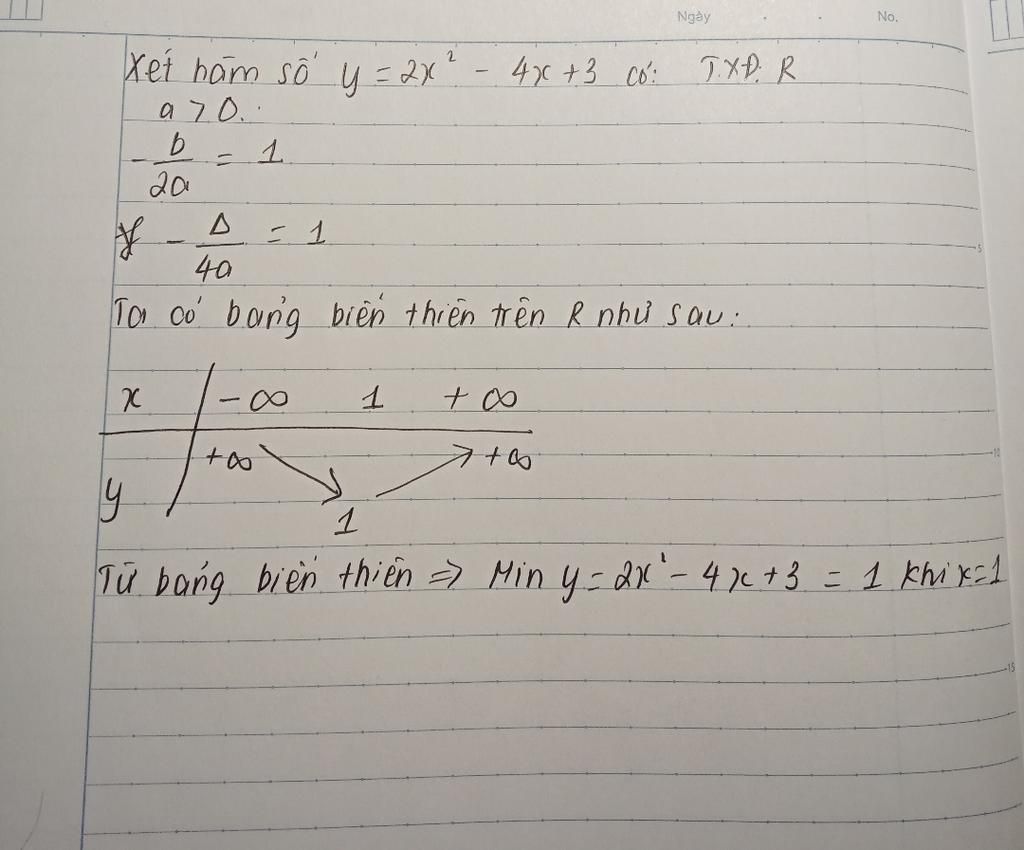 Ngày . . No.
Xét hàm số y = 2x² - 4x + 3 có: T.XĐ. R
a > 0.
- b/2a = 1
- Δ/4a = 1
Ta có bảng biến thiên trên R như sau:
x | -∞ 1 +∞
y | +∞ ↘ 1 ↗ +∞
Từ bảng biến thiên => Min y = 2x² - 4x + 3 = 1 khi x = 1
5
10
15